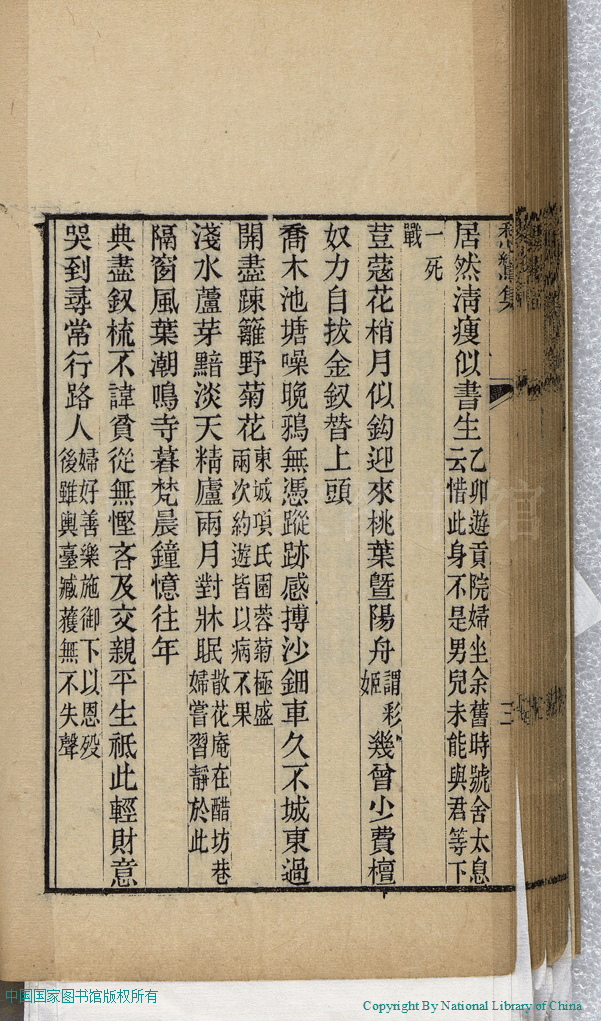 居然淸瘦似書生乙卯遊貢院婦坐余舊時號舍太息
云惜此身不是男兒未能與君等下
一死
戰
荳蔻花梢月似鈎迎來桃葉曁陽舟謂彩
姬
幾曾少費檀
奴力自拔金釵替上頭
喬木池塘噪晚鴉無憑蹤跡感摶沙鈿車久不城東過
開盡疎籬野菊花東城項氏園蓉菊極盛
兩次約遊皆以病不果
淺水蘆芽黯淡天精廬兩月對牀眠散花庵在醋坊巷
婦嘗習靜於此
隔窗風葉潮鳴寺暮梵晨鐘憶往年
典盡釵梳不諱貧從無慳吝及交親平生祇此輕財意
哭到尋常行路人婦好善樂施御下以恩歿
後雖輿臺臧獲無不失聲
中国国家图书馆版权所有
Copyright By National Library of China